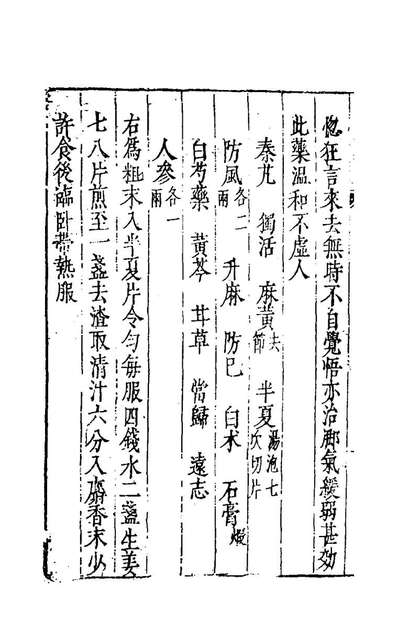 惚狂言來去無時不自覺悟亦治腳氣緩弱甚効
此藥温和不虛人
秦艽 獨活 麻黄去節 半夏湯泡七次切片
防風各二兩 升麻 防巳 白术 石膏煅
白芍藥 黄芩 甘草 當歸 遠志
人參各一兩
右爲粗末入半夏片令勻每服四錢水二盞生姜
七八片煎至一盞去渣取清汁六分入麝香末少
許食後臨卧帶熱服